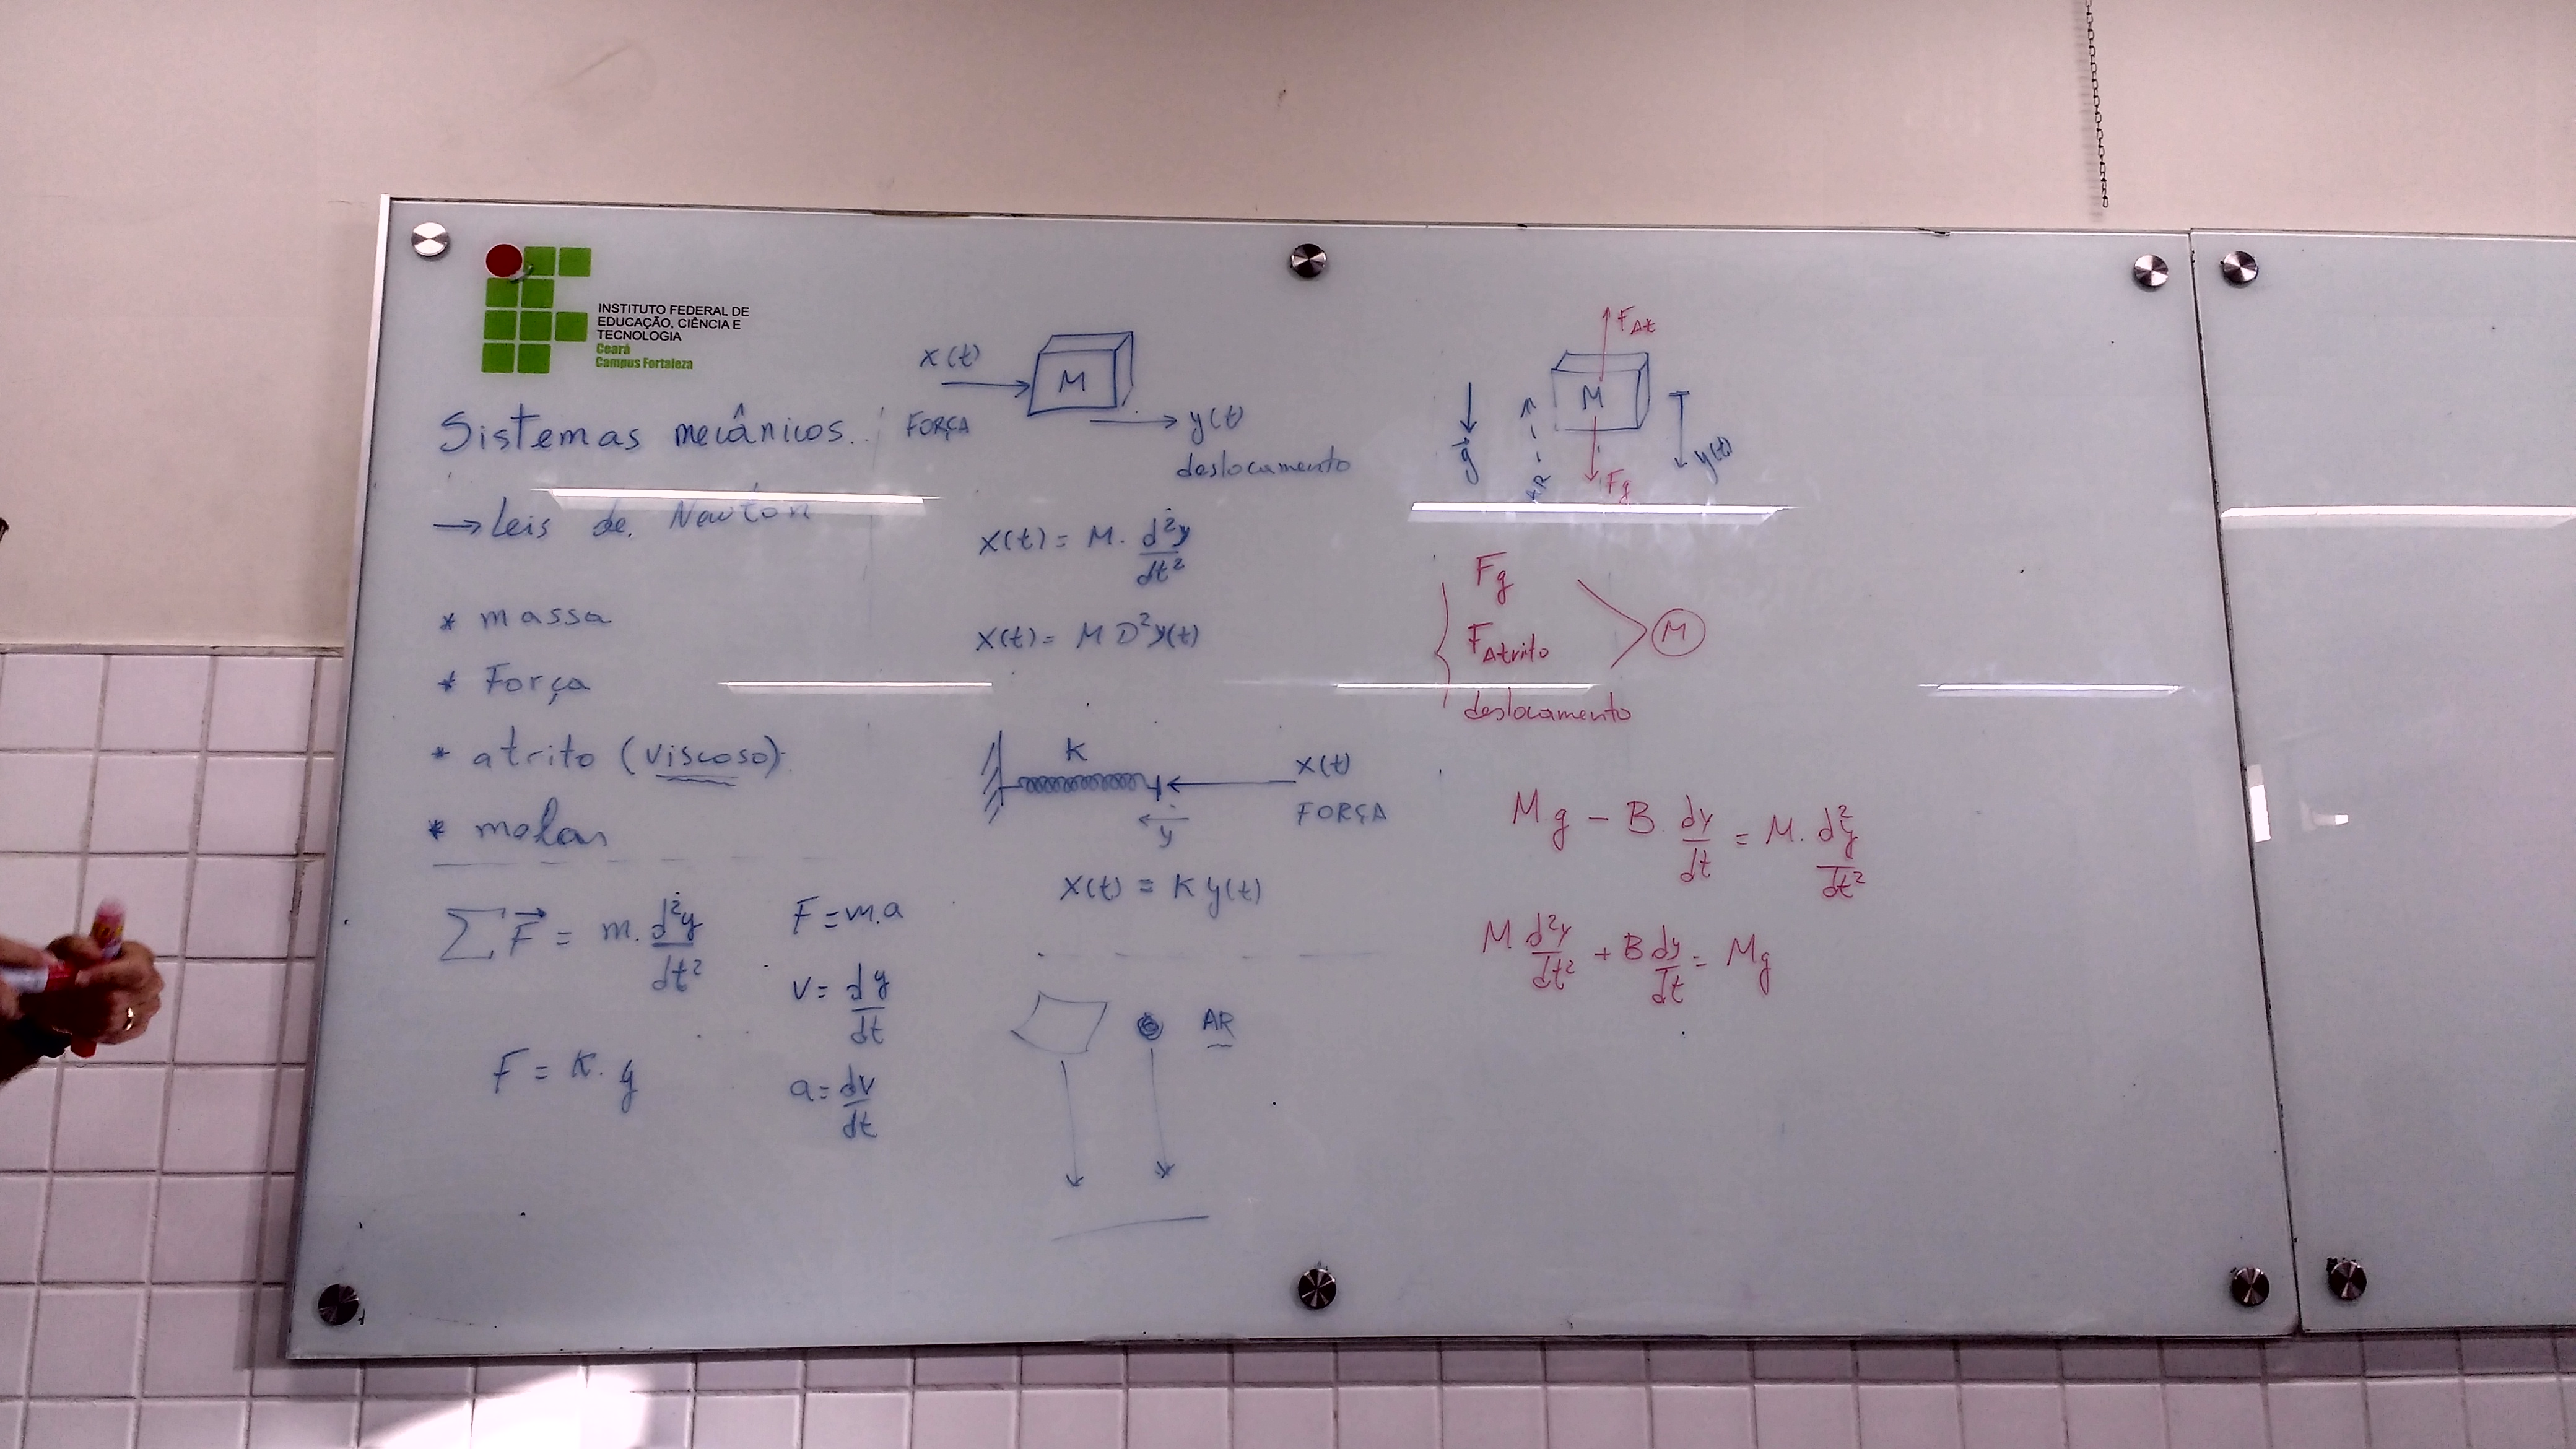 INSTITUTO FEDERAL DE
EDUCAÇÃO, CIÊNCIA E
TECNOLOGIA
Ceará
Campus Fortaleza
Sistemas mecânicos.
→ Leis de Newton
* massa
* Força
* atrito (viscoso)
* molas
∑F⃗ = m. d²y/dt²
F = K. y
F = m.a
v = dy/dt
a = dv/dt
x(t)
FORÇA
M
y(t)
deslocamento
x(t) = M. d²y/dt²
x(t) = M D²y(t)
K
x(t)
FORÇA
y
x(t) = K y(t)
AR
F At
M
g⃗
AR
Fg
y(t)
Fg
F Atrito
deslocamento
M
M.g − B. dy/dt = M. d²y/dt²
M d²y/dt² + B dy/dt = Mg